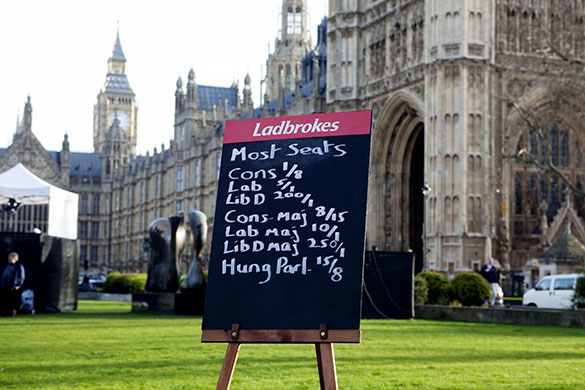 Ladbrokes
Most Seats
Cons 1/8
Lab 5/1
Lib D 200/1
Cons-Maj 8/15
Lab Maj 10/1
Lib D Maj 250/1
Hung Parl. 15/8